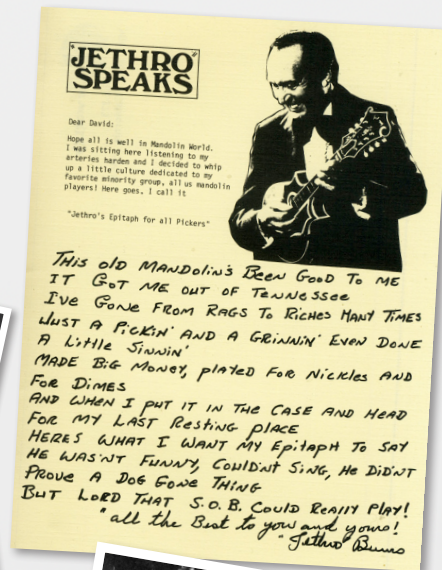 "JETHRO"
SPEAKS
Dear David:
Hope all is well in Mandolin World.
I was sitting here listening to my
arteries harden and I decided to whip
up a little culture dedicated to my
favorite minority group, all us mandolin
players! Here goes, I call it
"Jethro's Epitaph for all Pickers"
THIS OLD MANDOLIN'S BEEN GOOD TO ME
IT GOT ME OUT OF TENNESSEE
I'VE GONE FROM RAGS TO RICHES MANY TIMES
JUST A PICKIN' AND A GRINNIN' EVEN DONE
A LITTLE SINNIN'
MADE BIG MONEY, PLAYED FOR NICKLES AND
FOR DIMES
AND WHEN I PUT IT IN THE CASE AND HEAD
FOR MY LAST RESTING PLACE
HERES WHAT I WANT MY EPITAPH TO SAY
HE WAS'NT FUNNY, COULD'NT SING, HE DID'NT
PROVE A DOG GONE THING
BUT LORD THAT S.O.B. COULD REALLY PLAY!
"all the Best to you and yours!
"Jethro" Burns